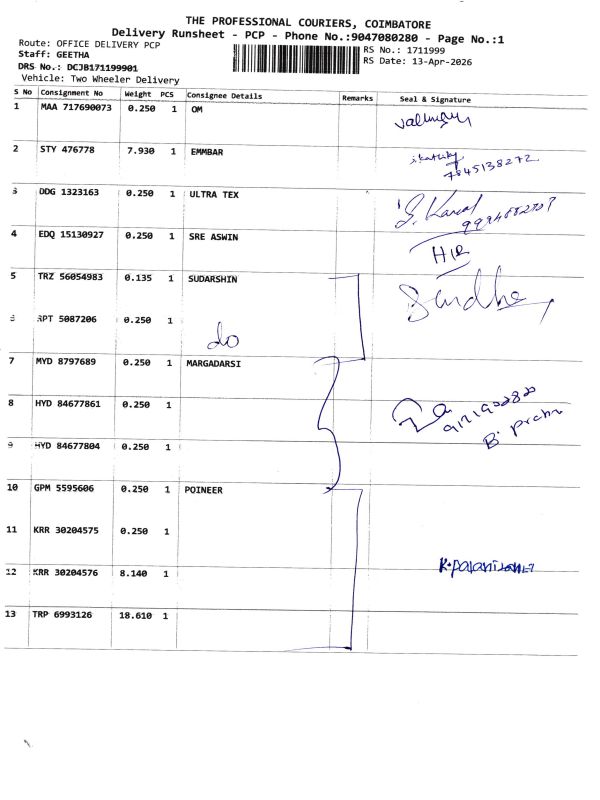 THE PROFESSIONAL COURIERS, COIMBATORE
Delivery Runsheet - PCP - Phone No.:9047080280 - Page No.:1
Route: OFFICE DELIVERY PCP
Staff: GEETHA
DRS No.: DCJB171199901
Vehicle: Two Wheeler Delivery
RS No.: 1711999
RS Date: 13-Apr-2026
S No Consignment No Weight PCS Consignee Details Remarks Seal & Signature
1 MAA 717690073 0.250 1 OM
2 STY 476778 7.930 1 EMMBAR
7845138272
3 DDG 1323163 0.250 1 ULTRA TEX
4 EDQ 15130927 0.250 1 SRE ASWIN
HIR
5 TRZ 56054983 0.135 1 SUDARSHIN
6 RPT 5087206 0.250 1
do
7 MYD 8797689 0.250 1 MARGADARSI
8 HYD 84677861 0.250 1
9 HYD 84677804 0.250 1
10 GPM 5595606 0.250 1 POINEER
11 KRR 30204575 0.250 1
12 KRR 30204576 8.140 1
13 TRP 6993126 18.610 1